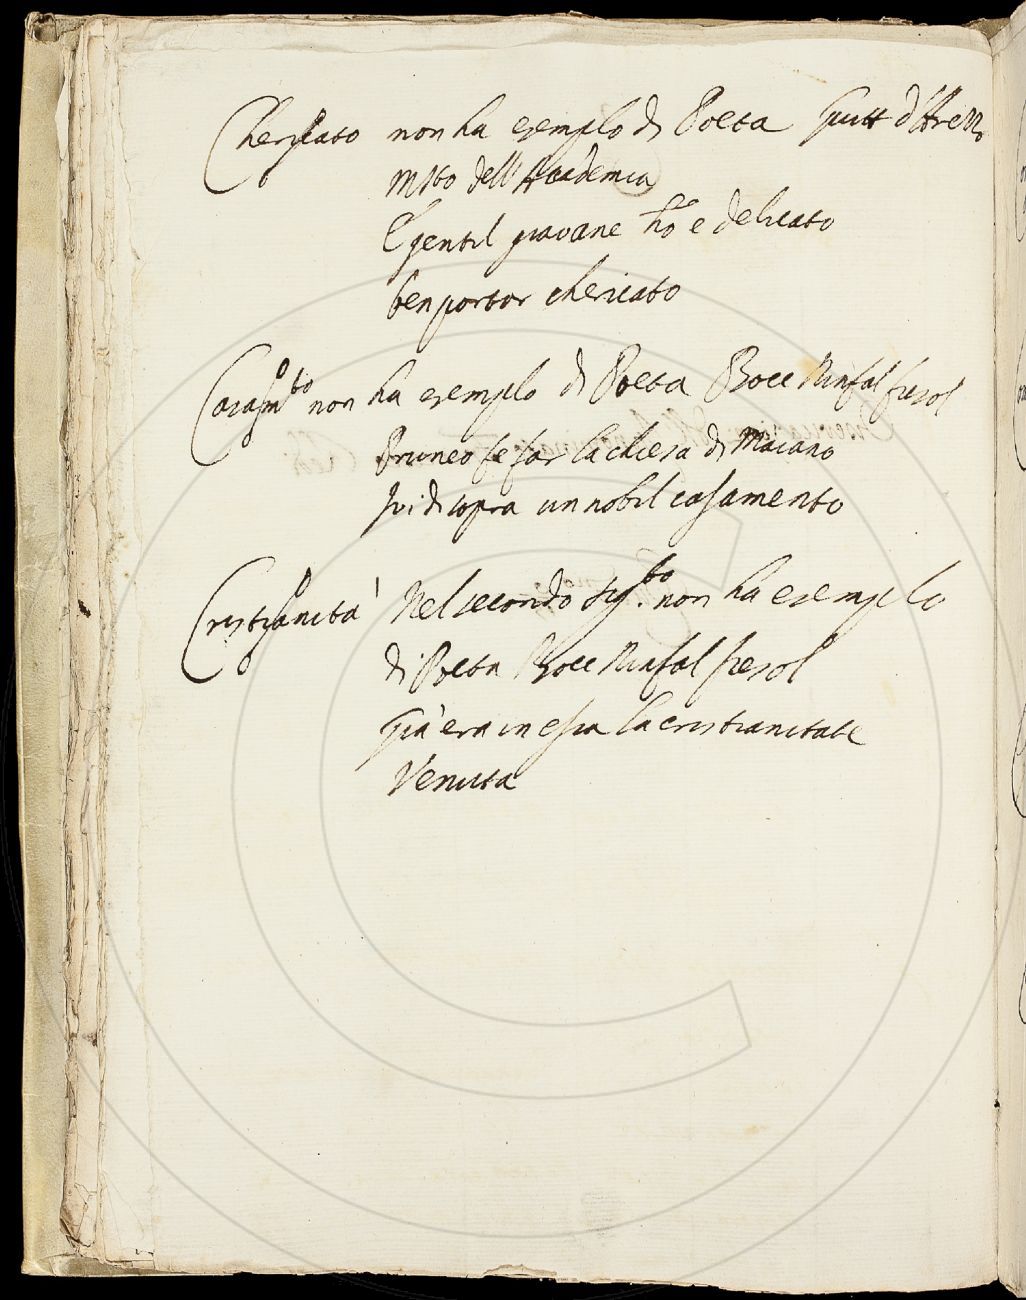 Chericato non ha esemplo di Poeta Guitt d'Arezzo
msto dell'Accademia
E gentil giovane ho e delicato
ben portar chericato
Casamto non ha esemplo di Poeta Bocc Ninfal fiesol
Pruneo fe far la chiesa di Maiano
Ivi di sopra un nobil casamento
Cristianità Nel secondo sig.to non ha esemplo
di Poeta Bocc Ninfal fiesol
Già era in essa la cristianitate
Venuta